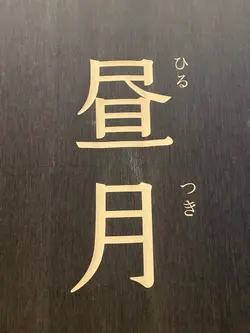 昼月
ひる つき